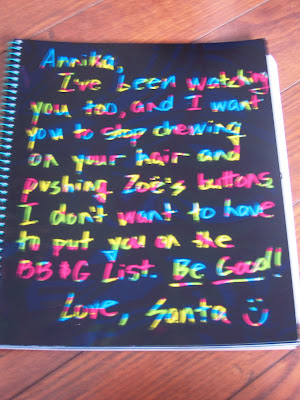 Annika,
I've been watching
you too, and I want
you to stop chewing
on your hair and
pushing Zoë's buttons.
I don't want to have
to put you on the
BB&G List. Be Good!
Love, Santa